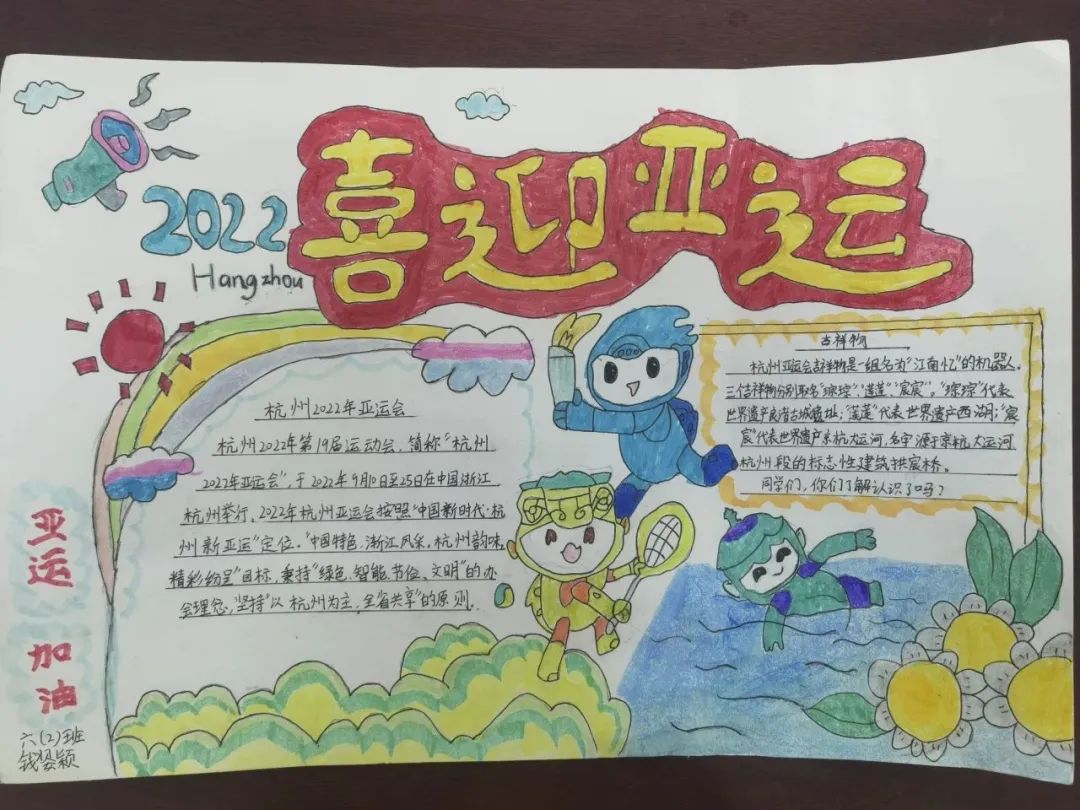 2022
Hangzhou
喜迎亚运
杭州2022年亚运会
杭州2022年第19届运动会，简称“杭州
2022年亚运会”，于2022年9月10日至25日在中国浙江
杭州举行。2022年杭州亚运会按照“中国新时代·杭
州新亚运”定位。“中国特色，浙江风采，杭州韵味，
精彩纷呈”目标，秉持“绿色、智能、节俭、文明”的办
会理念，坚持“以杭州为主，全省共享”的原则。
吉祥物
杭州亚运会吉祥物是一组名为“江南忆”的机器人。
三个吉祥物分别取名“琮琮”、“莲莲”、“宸宸”。“琮琮”代表
世界遗产良渚古城遗址；“莲莲”代表世界遗产西湖；“宸
宸”代表世界遗产京杭大运河，名字源于京杭大运河
杭州段的标志性建筑拱宸桥。
同学们，你们了解认识了吗？
亚运
加油
六(2)班
钱颖